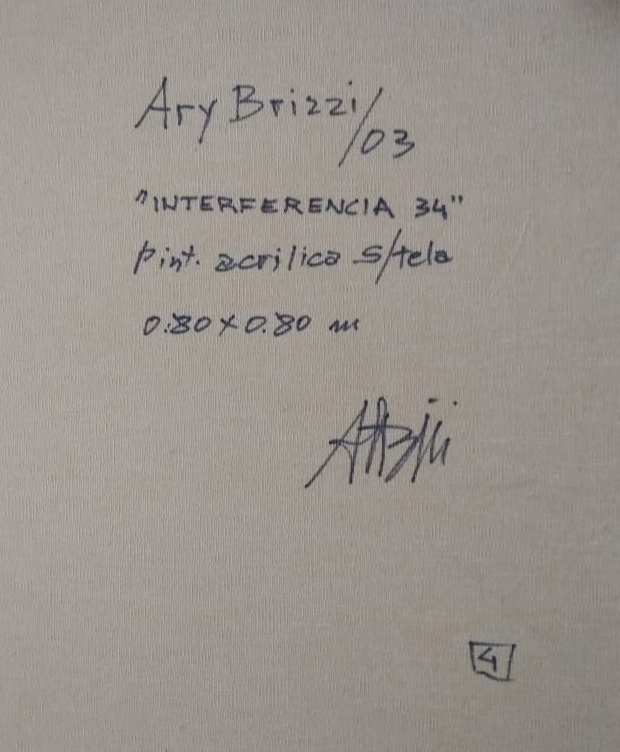 Ary Brizzi/03
"INTERFERENCIA 34"
pint. acrilica s/tela
0.80 x 0.80 m
4